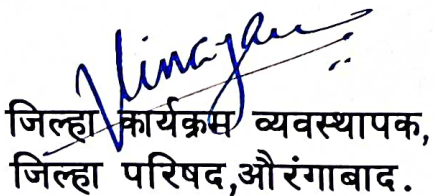 जिल्हा कार्यक्रम व्यवस्थापक,
जिल्हा परिषद,औरंगाबाद.